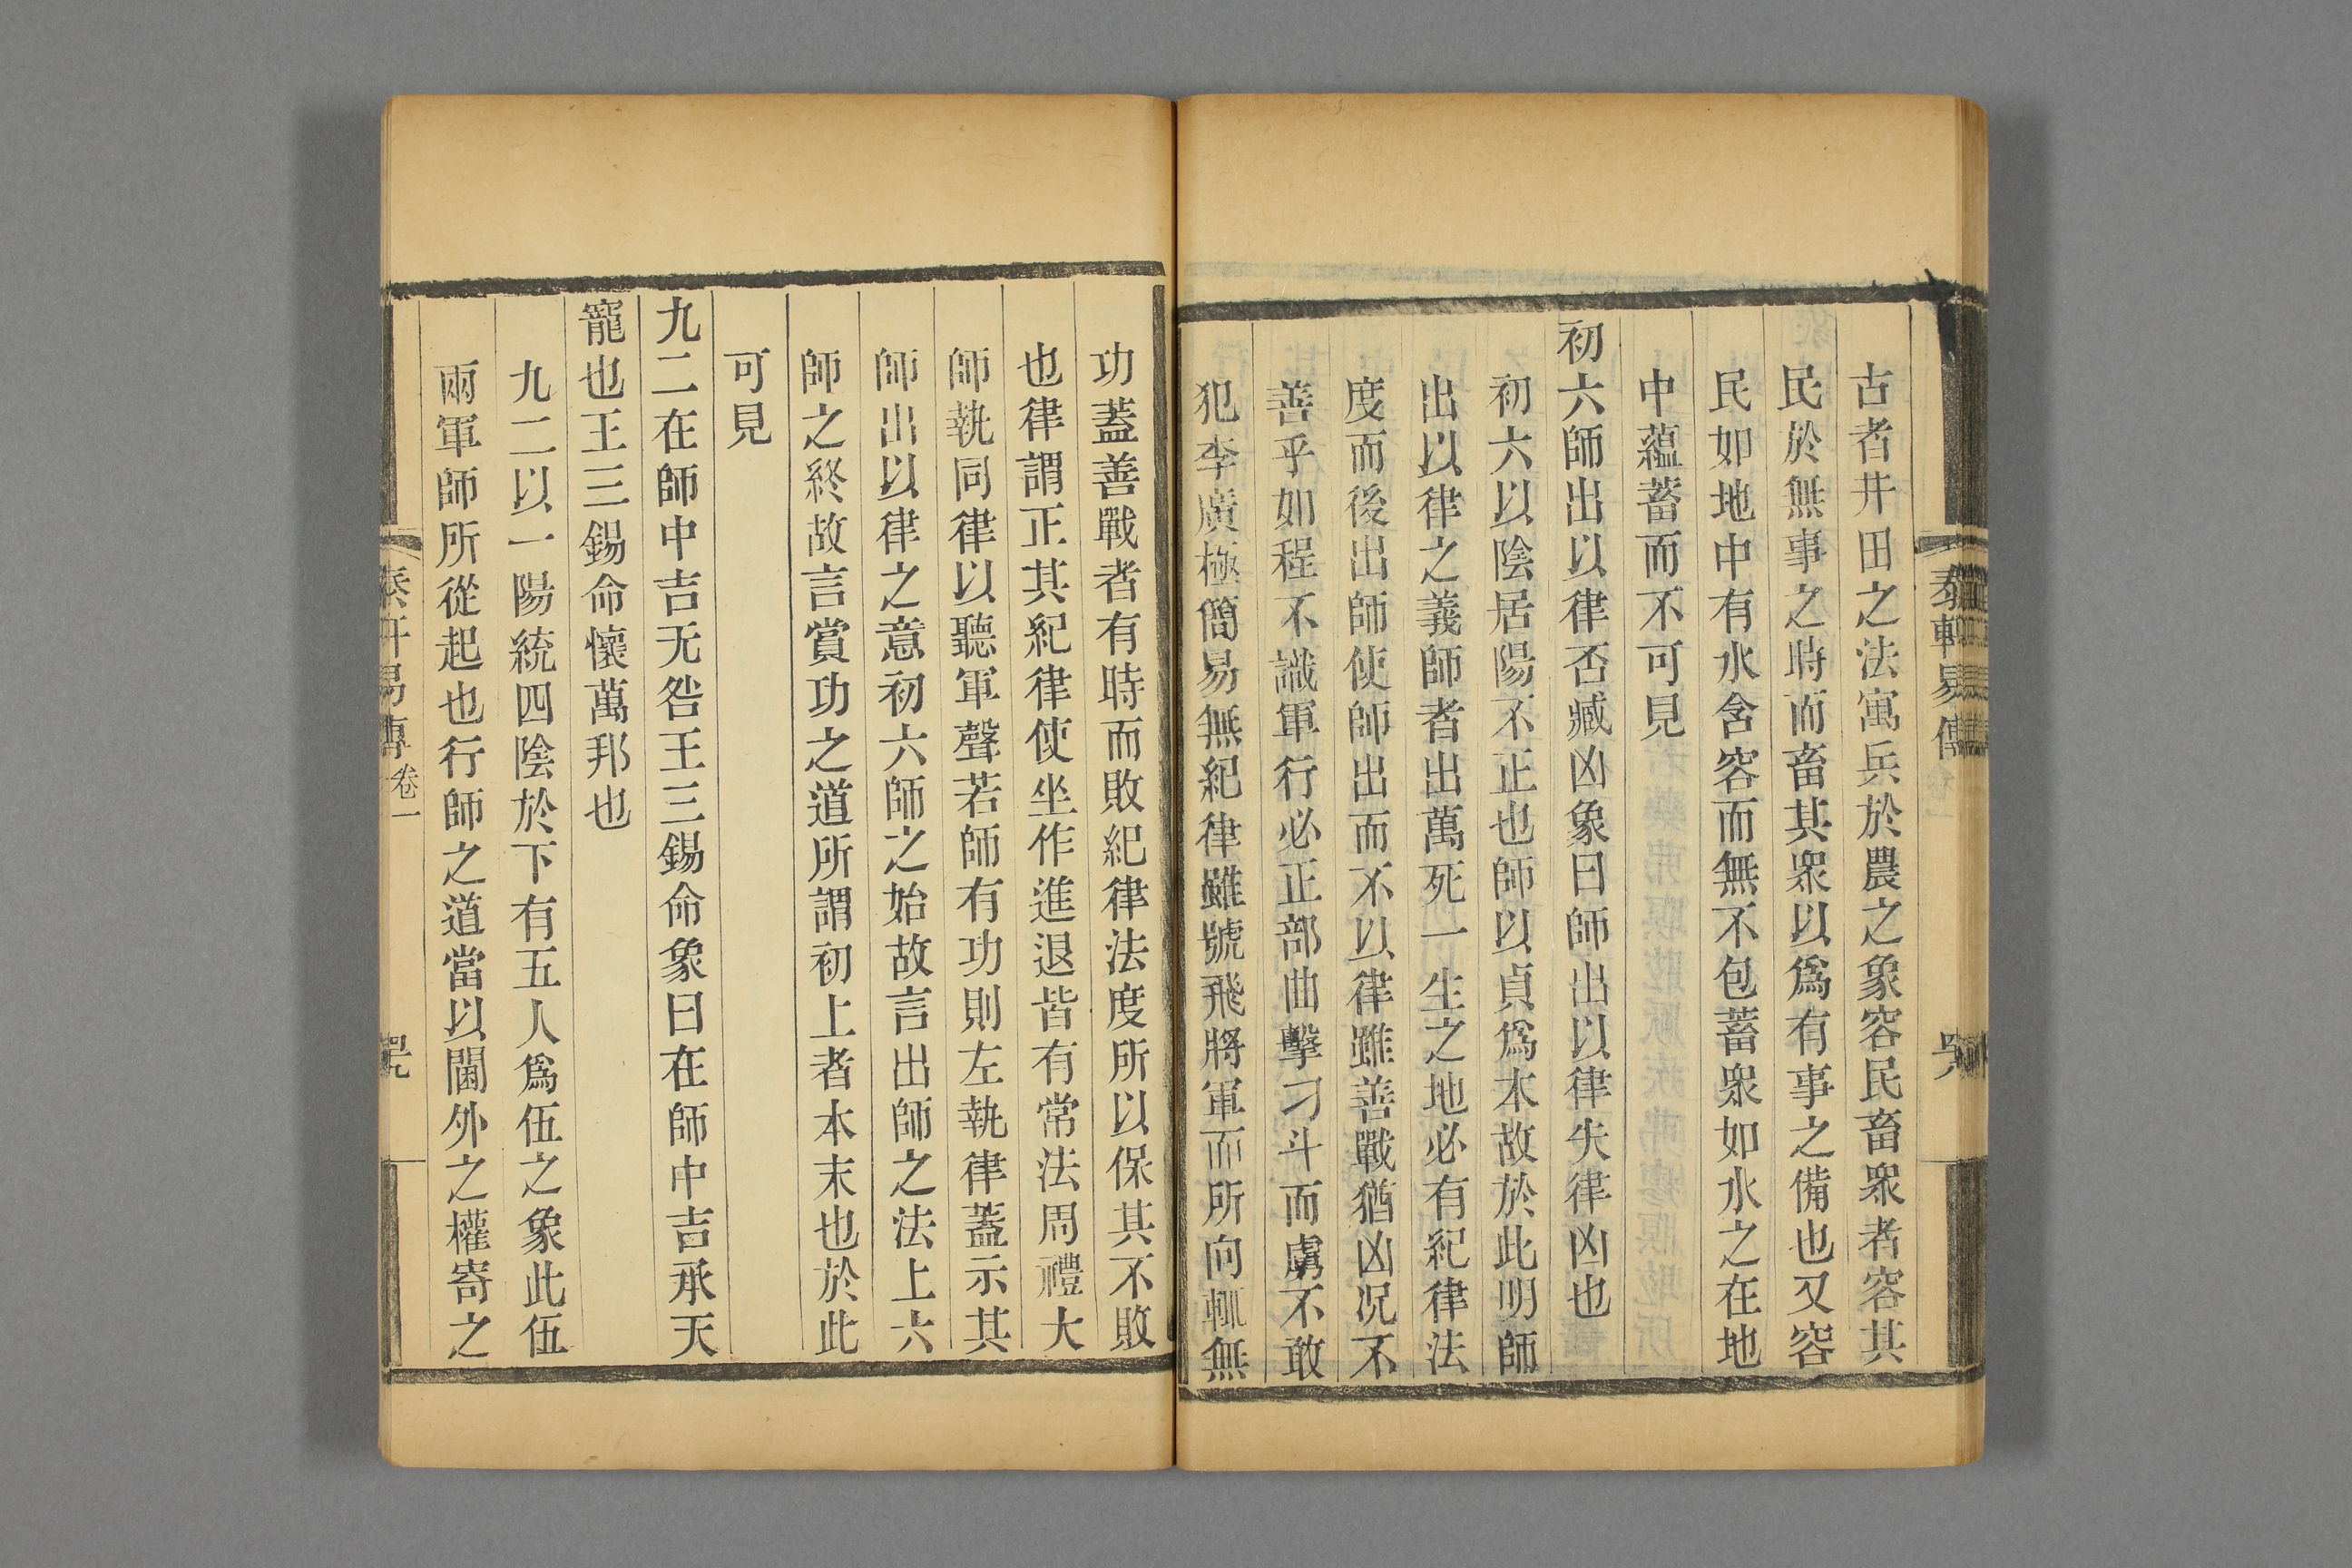 古者井田之法寓兵於農之象容民畜衆者容其
民於無事之時而畜其衆以爲有事之備也又容
民如地中有水含容而無不包蓄衆如水之在地
中蘊蓄而不可見
初六師出以律否臧凶象曰師出以律失律凶也
初六以陰居陽不正也師以貞爲本故於此明師
出以律之義師者出萬死一生之地必有紀律法
度而後出師使師出而不以律雖善戰猶凶况不
善乎如程不識軍行必正部曲擊刁斗而虜不敢
犯李廣極簡易無紀律雖號飛將軍而所向輒無
功蓋善戰者有時而敗紀律法度所以保其不敗
也律謂正其紀律使坐作進退皆有常法周禮大
師執同律以聽軍聲若師有功則左執律蓋示其
師出以律之意初六師之始故言出師之法上六
師之終故言賞功之道所謂初上者本末也於此
可見
九二在師中吉无咎王三錫命象曰在師中吉承天
寵也王三錫命懷萬邦也
九二以一陽統四陰於下有五人爲伍之象此伍
兩軍師所從起也行師之道當以閫外之權寄之
易傳 卷一